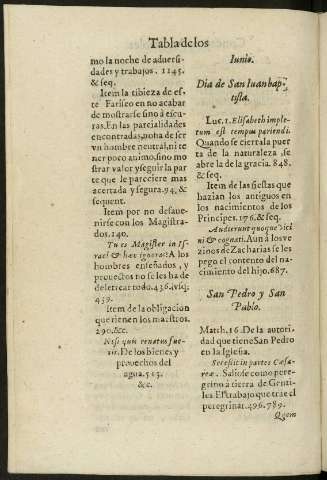 Tabla de los
mo la noche de aduersi-
dades y trabajos. 1145.
& seq.
Item la tibieza de es-
te Fariseo en no acabar
de mostrarse sino à escu-
ras. En las parcialidades
encontradas, no ha de ser
vn hombre neutral, ni te
ner poco animo, sino mo
strar valor y seguir la par
te que le pareciere mas
acertada y segura. 94, &
sequent.
Item por no desaue-
nirse con los Magistra-
dos. 140.
Tu es Magister in Is-
rael & hæc ignoras: A los
hombres enseñados, y
prouectos no se les ha de
deletrear todo. 436. vsq;
459.
Item de la obligacion
que tienen los maestros.
290. &c.
Nisi quis renatus fue-
rit. De los bienes y
prouechos del
agua. 513.
&c.
Iunio.
Dia de San Iuan bap-
tista.
Luc. 1. Elisabeth imple-
tum est tempus pariendi.
Quando se cierra la puerta
de la naturaleza, se
abre la de la gracia. 848.
& seq.
Item de las fiestas que
hazian los antiguos en
los nacimientos de los
Principes. 176. & seq.
Audierunt quoque vici
ni & cognati. Aun à los ve
zinos de Zacharias se les
pego el contento del na-
cimiento del hijo. 687.
San Pedro y San
Pablo.
Matth. 16. De la autori-
dad que tiene San Pedro
en la Iglesia.
Secessit in partes Cæsa-
reæ. Saliose como pere-
grino à tierra de Genti-
les El trabajo que trae el
peregrinar. 496. 789.
Quem